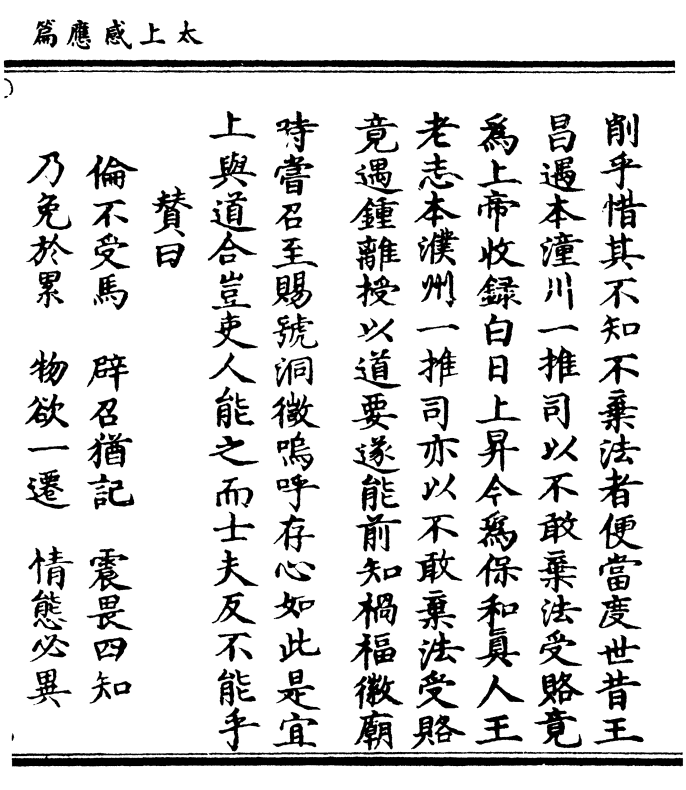 太上感應篇
削乎惜其不知不棄法者便當度世昔王
昌遇本潼川一推司以不敢棄法受賂竟
爲上帝收録白日上昇今爲保和真人王
老志本濮州一推司亦以不敢棄法受賂
竟遇鍾離授以道要遂能前知禍福徽廟
時嘗召至賜號洞微嗚呼存心如此是宜
上與道合豈吏人能之而士夫反不能乎
賛曰
倫不受馬 辟召猶記 震畏四知
乃免於累 物欲一遷 情態必異